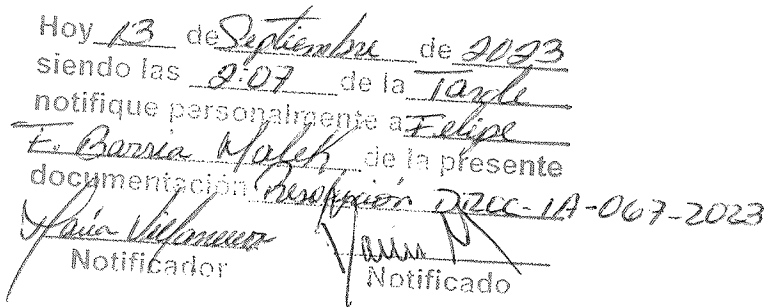 Hoy 13 de Septiembre de 2023
siendo las 2:07 de la Tarde
notifique personalmente a Felipe
F. Barría Malek de la presente
documentación Resolución DRCC-IA-067-2023
María Villanueva
Notificador Notificado